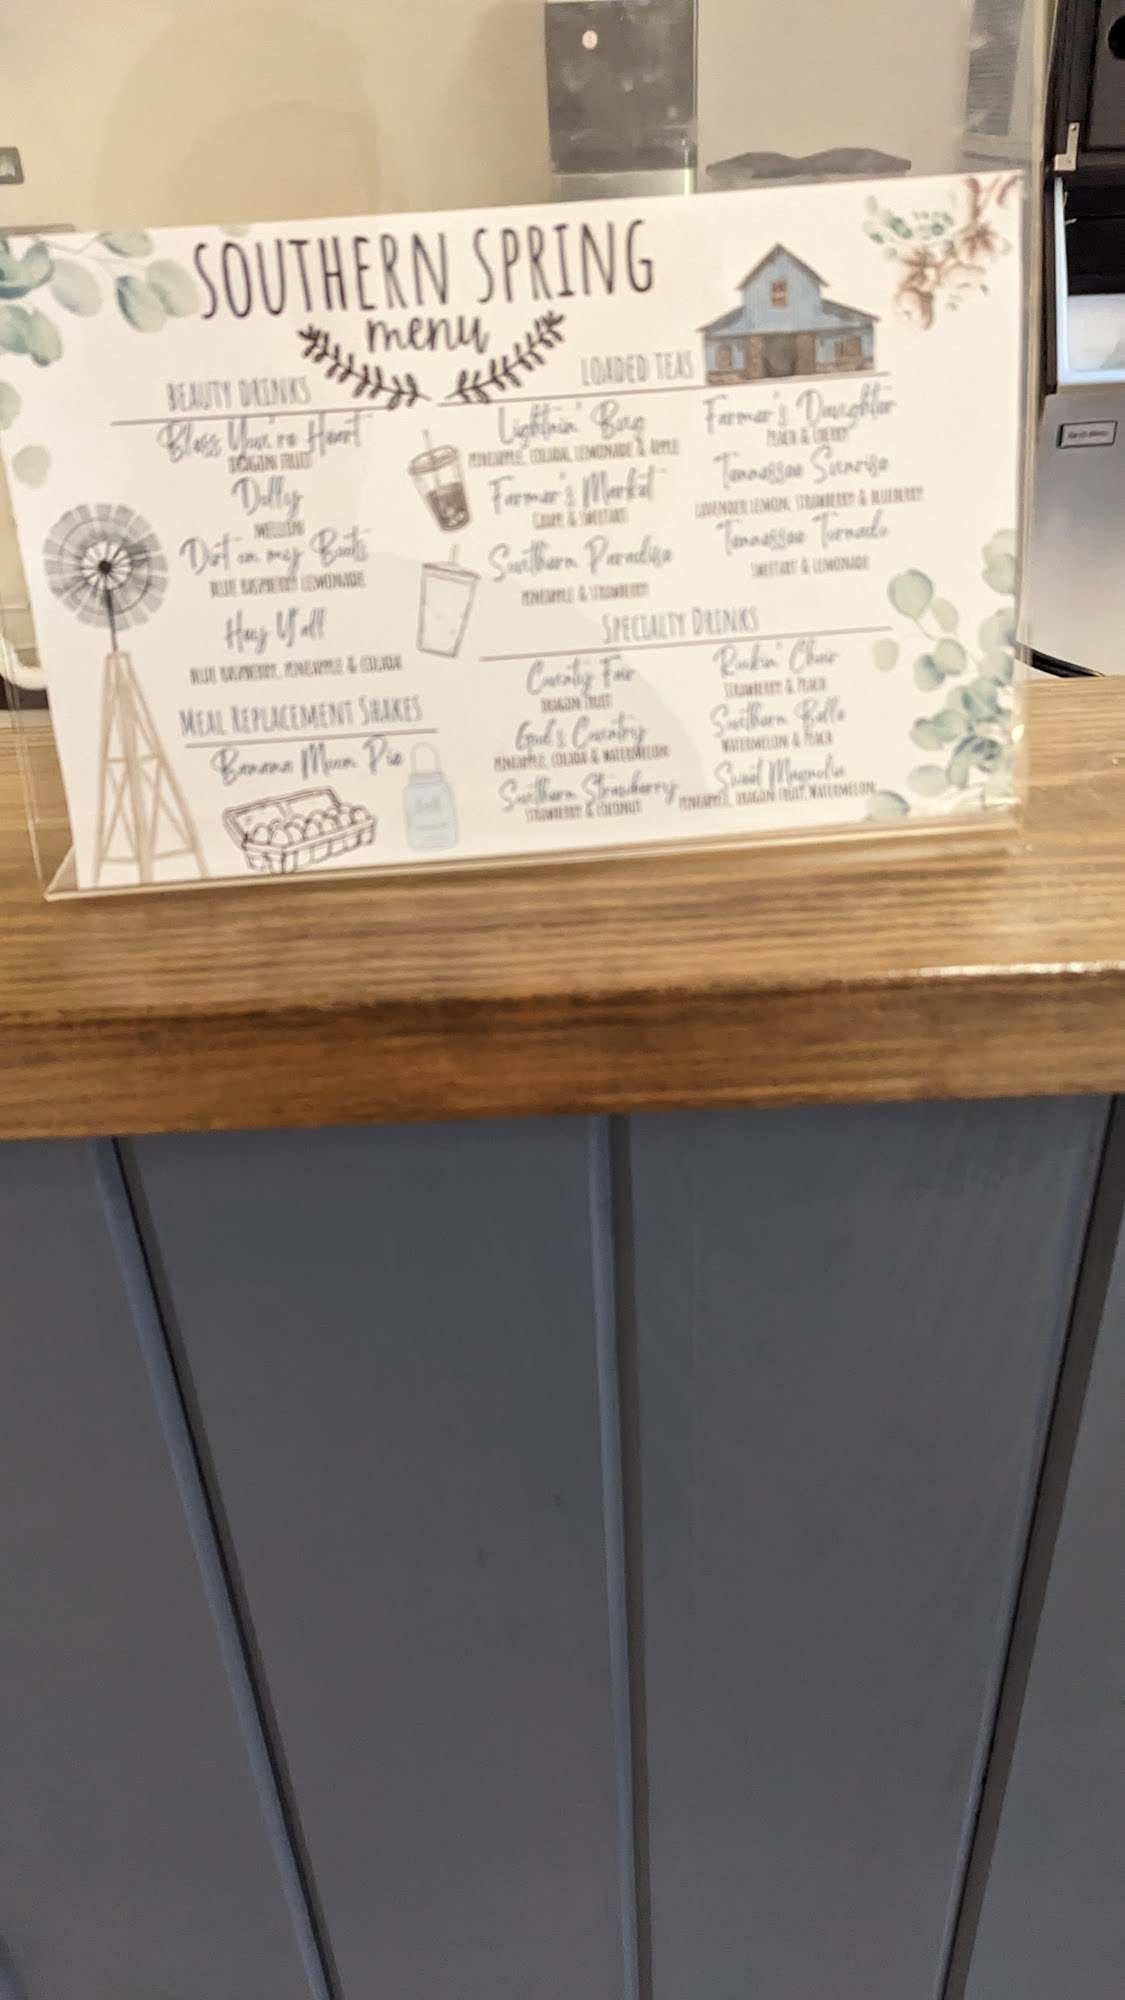 SOUTHERN SPRING
menu
BEAUTY DRINKS
Bless You're Heart
DRAGON FRUIT
Dolly
Dirt on my Boots
BLUE RASPBERRY LEMONADE
Hey Y'all
BLUE RASPBERRY, PINEAPPLE & COLADA
MEAL REPLACEMENT SHAKES
Banana Moon Pie
LOADED TEAS
Lightnin' Bug
PINEAPPLE, COLADA, LEMONADE & APPLE
Farmer's Market
GRAPE & SWEETART
Southern Paradise
PINEAPPLE & STRAWBERRY
Farmer's Daughter
PEACH & CHERRY
Tennessee Sunrise
LAVENDER LEMON, STRAWBERRY & BLUEBERRY
Tennessee Tornado
SWEETART & LEMONADE
SPECIALTY DRINKS
Country Fair
DRAGON FRUIT
God's Country
PINEAPPLE, COLADA & WATERMELON
Southern Strawberry
STRAWBERRY & COCONUT
Rockin' Chair
STRAWBERRY & PEACH
Southern Belle
WATERMELON & PEACH
Sweet Magnolia
PINEAPPLE, DRAGON FRUIT, WATERMELON